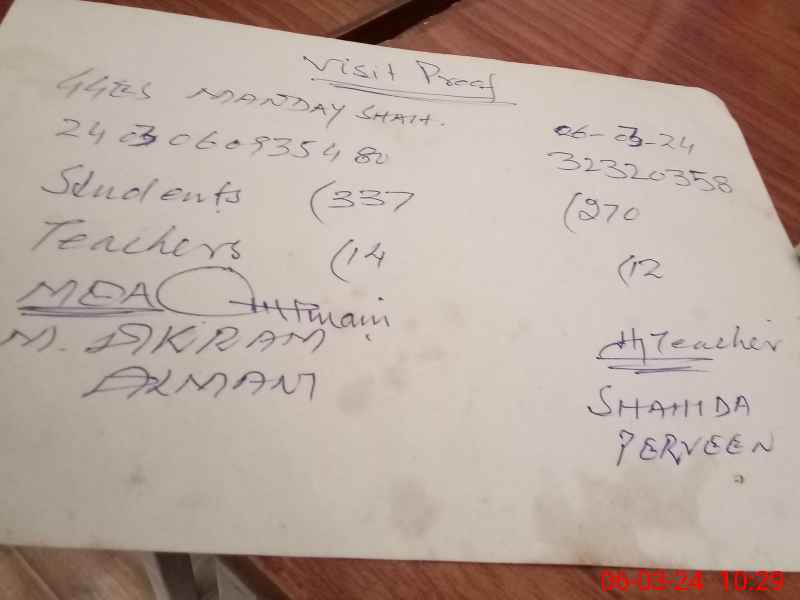 Visit Proof
MANDAY SHAH.
06-03-24
24030609354 80
32320358
Students (337 (270
Teachers (14 (12
MEA
M. AKRAM
H/Teacher
SHAHIDA
PERVEEN
06-03-24 10:29